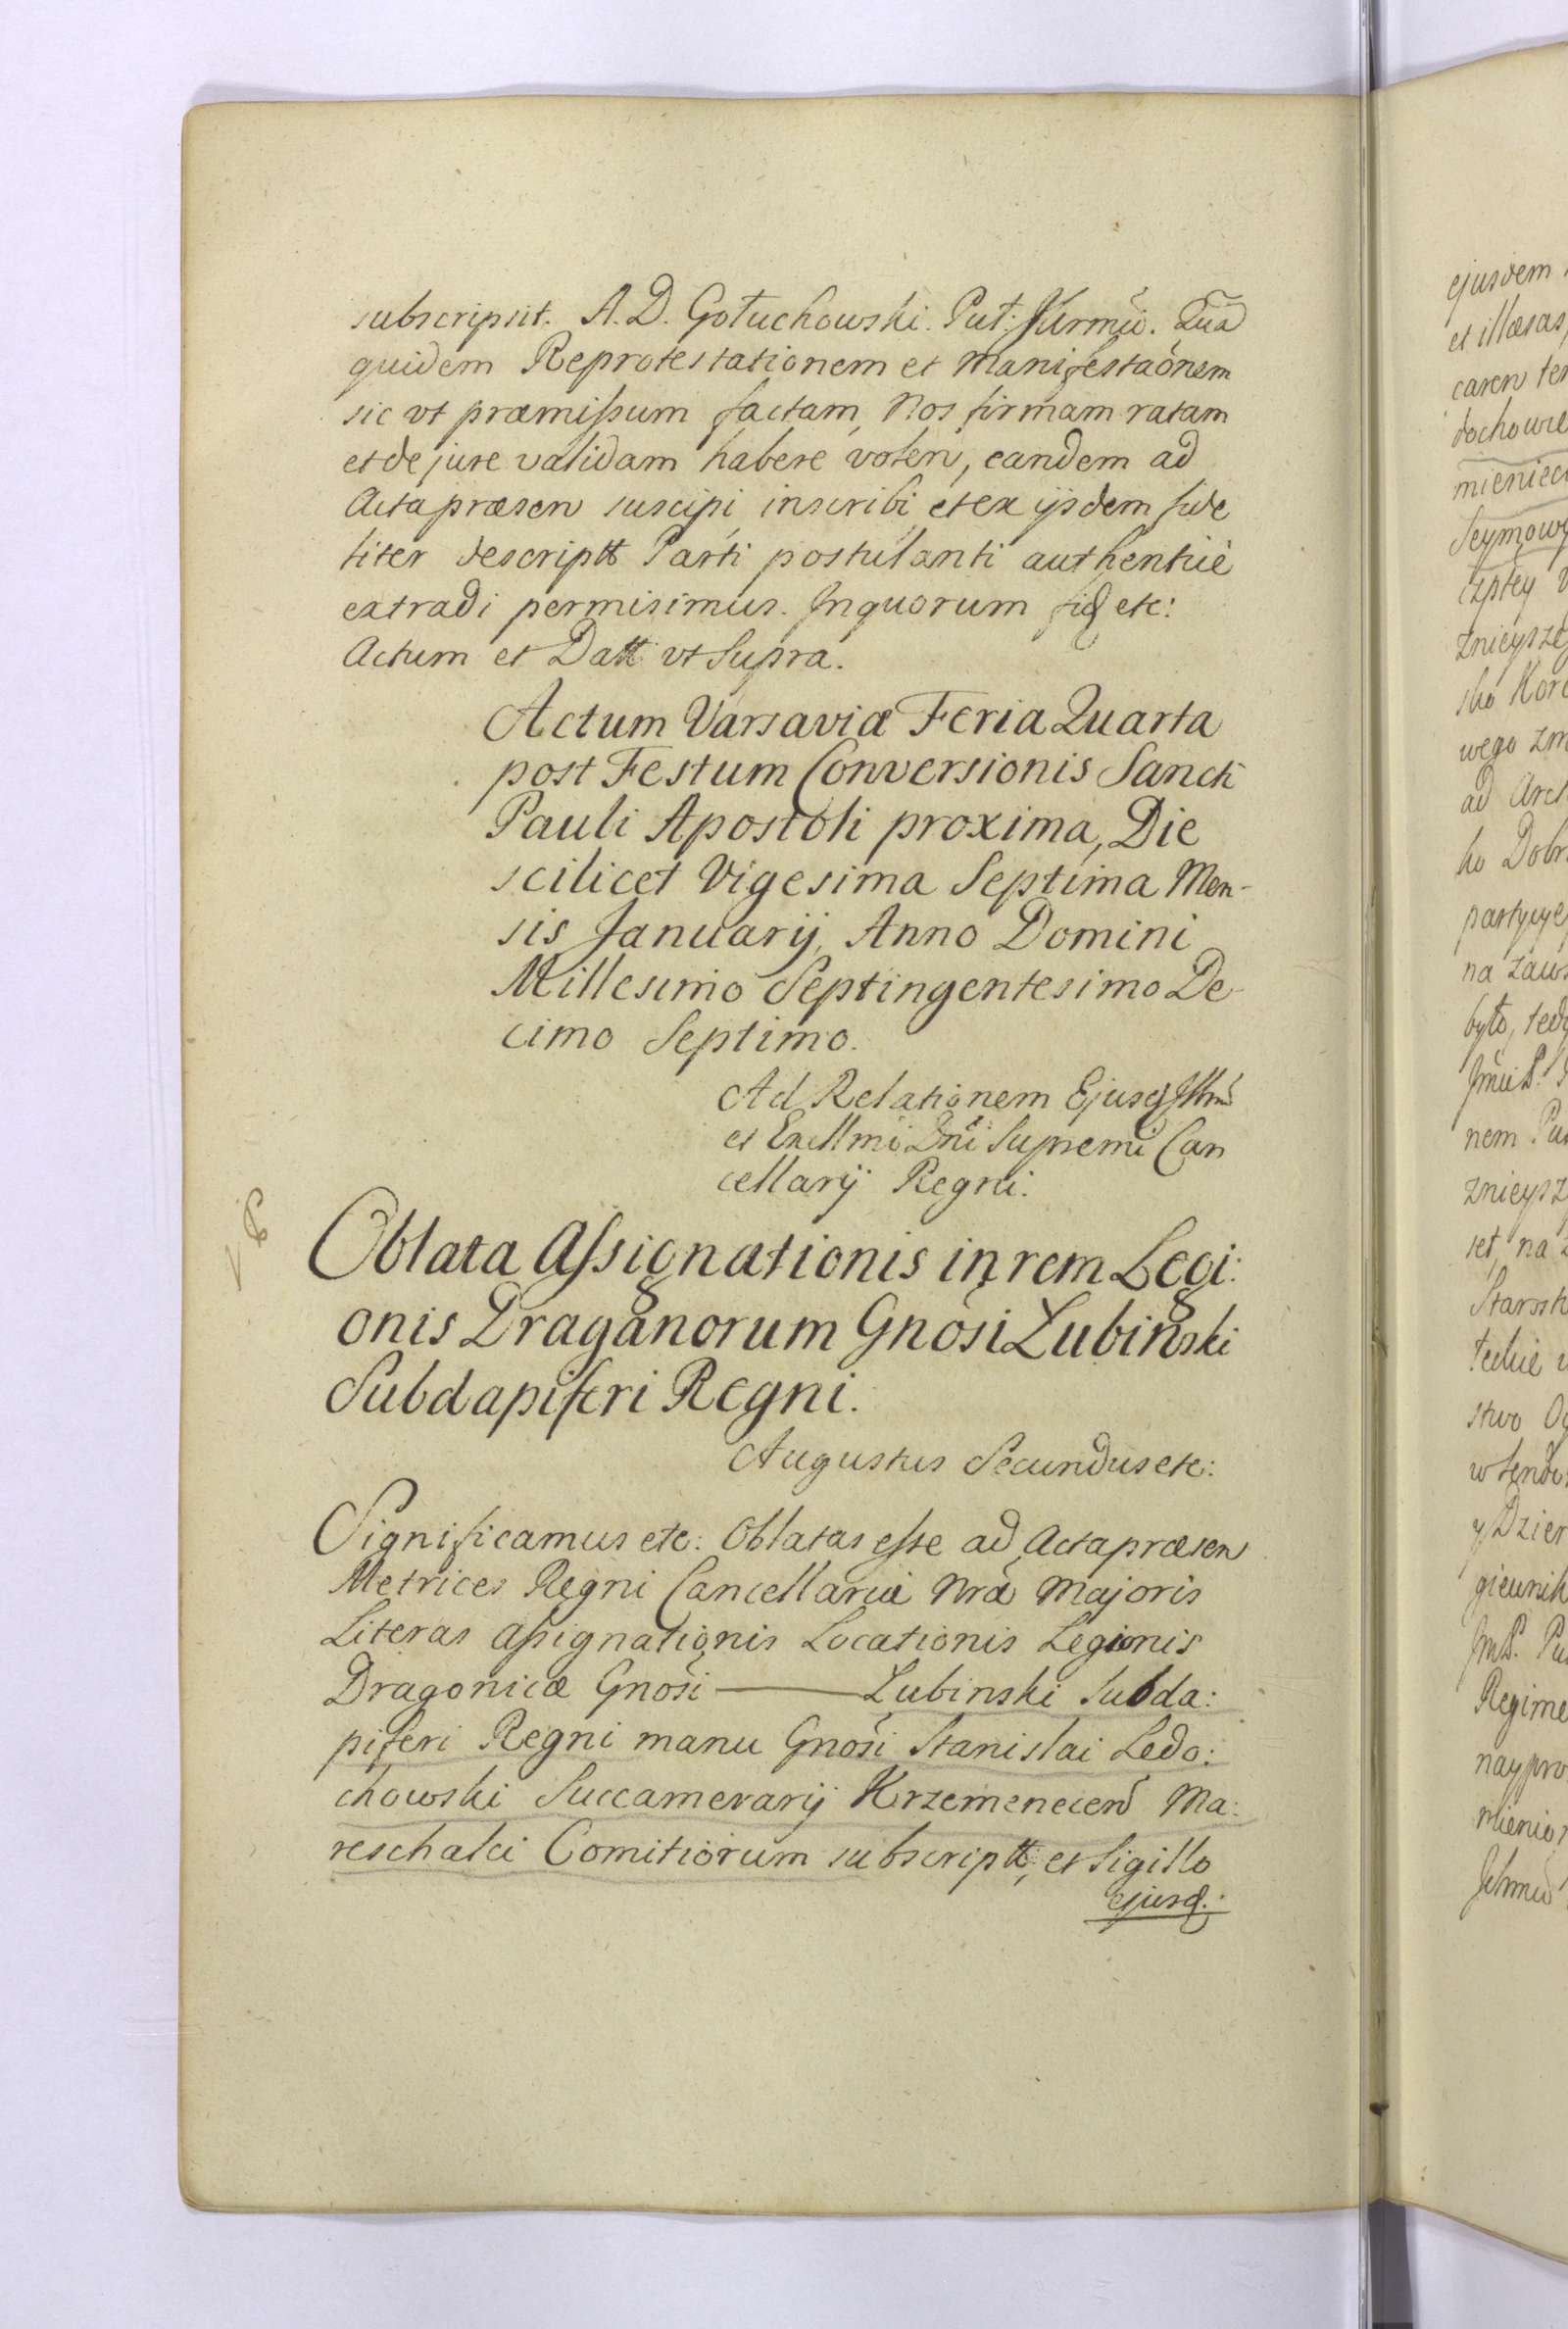 subscripsit. A. D. Gołuchowski. Put: Jurmü. Quã
quidem Reprotestationem et Manifestaõnem
sic vt præmissum factam, Nos firmam ratam
et de jure validam habere volen, eandem ad
Acta præsen suscipi, inscribi, et ex ijsdem fide
liter descriptt Parti postulanti authentice
extradi permisimus. In quorum fid etc:
Actum et Datt vt Supra.
Actum Varsaviæ Feria Quarta
post Festum Conversionis Sancti
Pauli Apostoli proxima, Die
scilicet Vigesima Septima Men-
sis Januarij, Anno Domini
Millesimo Septingentesimo De-
cimo Septimo.
Ad Relationem Ejusd Illmi
et Exellmi Dni Supremi Can
cellarij Regni.
Oblata Assignationis in rem Legi:
onis Draganorum Gnosi Lubinski
Subdapiferi Regni.
Augustus Secundus etc:
Significamus etc: Oblatas esse ad Acta præsen
Metrices Regni Cancellariæ Nræ Majoris
Literas Assignationis Locationis Legionis
Dragonicæ Gnosi ——— Lubinski Subda:
piferi Regni manu Gnosi Stanislai Ledo:
chowski Succamerarij Krzemenecen Ma:
reschalci Comitiorum subscriptt, et Sigillo
ejusd:
ejusdem
et illæsas,
caren ter
dochowie
mienieci
Seymowy
czptey
znieysze
sko Kor
wego zm
ad Arch
ko Dobr
partycye
na zaws
było, tedy
nem Pu
znieysz
set, na
Starosk
stwo
y Dzier
gieunik
Regime
naypro
mienio